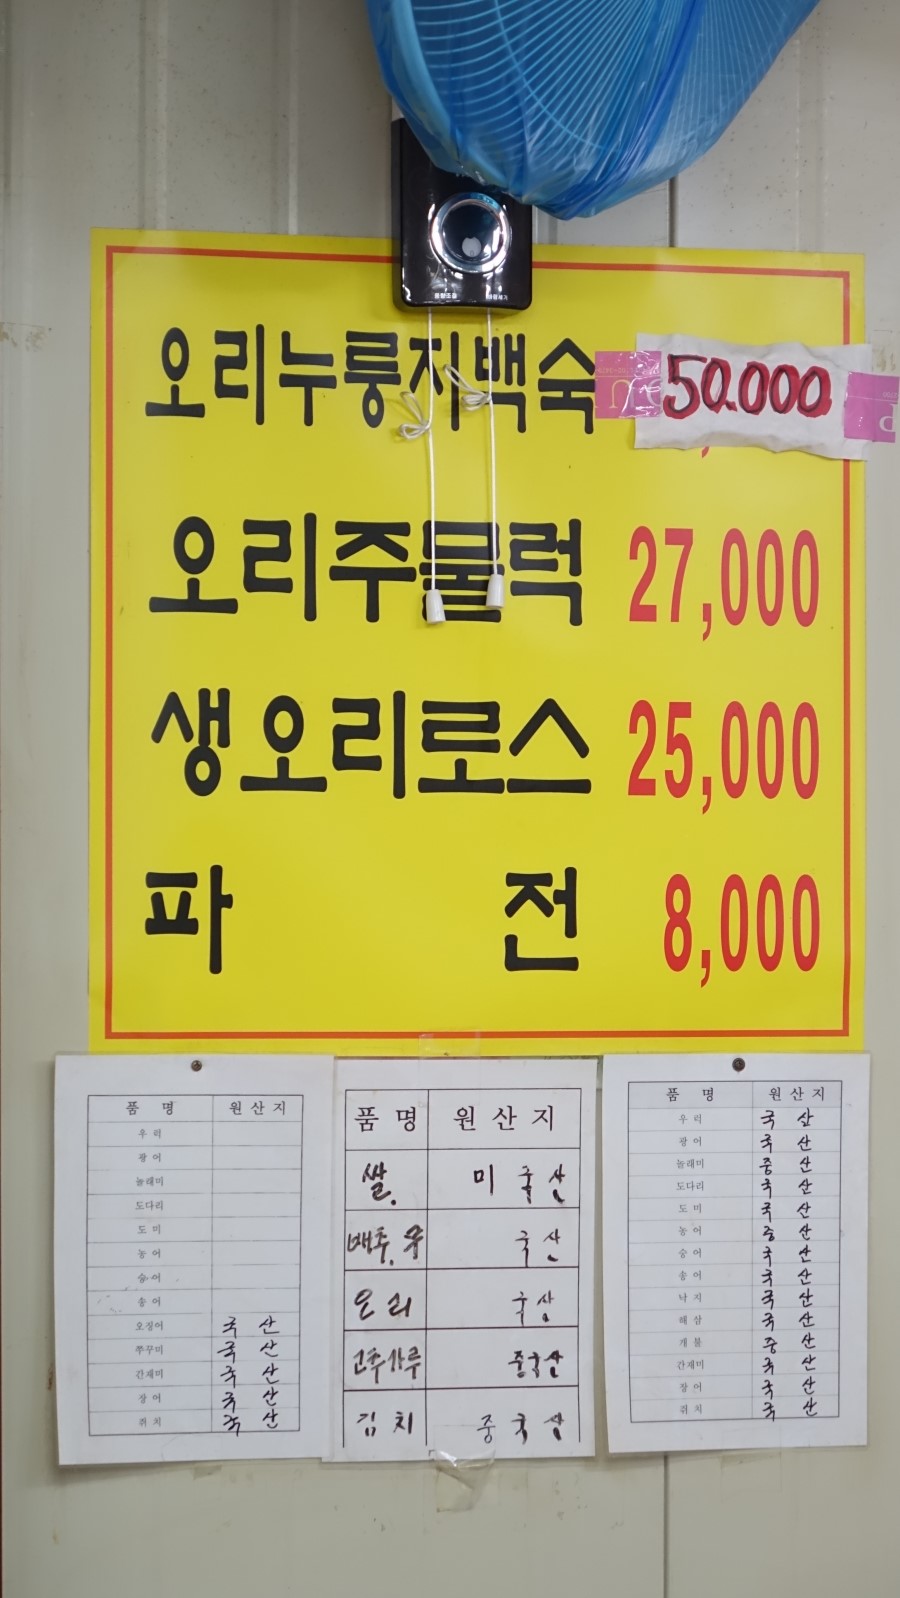 오리누룽지백숙 50.000
오리주물럭 27,000
생오리로스 25,000
파 전 8,000
품 명 원 산 지
우 럭
광 어
놀래미
도다리
도 미
농 어
숭 어
송 어
오징어 국 산
쭈꾸미 국 산
간재미 국 산
장 어 국 산
쥐 치 국 산
품 명 원 산 지
쌀. 미 국 산
배추. 무 국 산
오 리 국 산
고추가루 중국산
김 치 중 국 산
품 명 원 산 지
우 럭 국 산
광 어 국 산
놀래미 중 산
도다리 국 산
도 미 국 산
농 어 중 산
숭 어 국 산
송 어 국 산
낙 지 국 산
해 삼 국 산
개 불 중 산
간재미 국 산
장 어 국 산
쥐 치 국 산